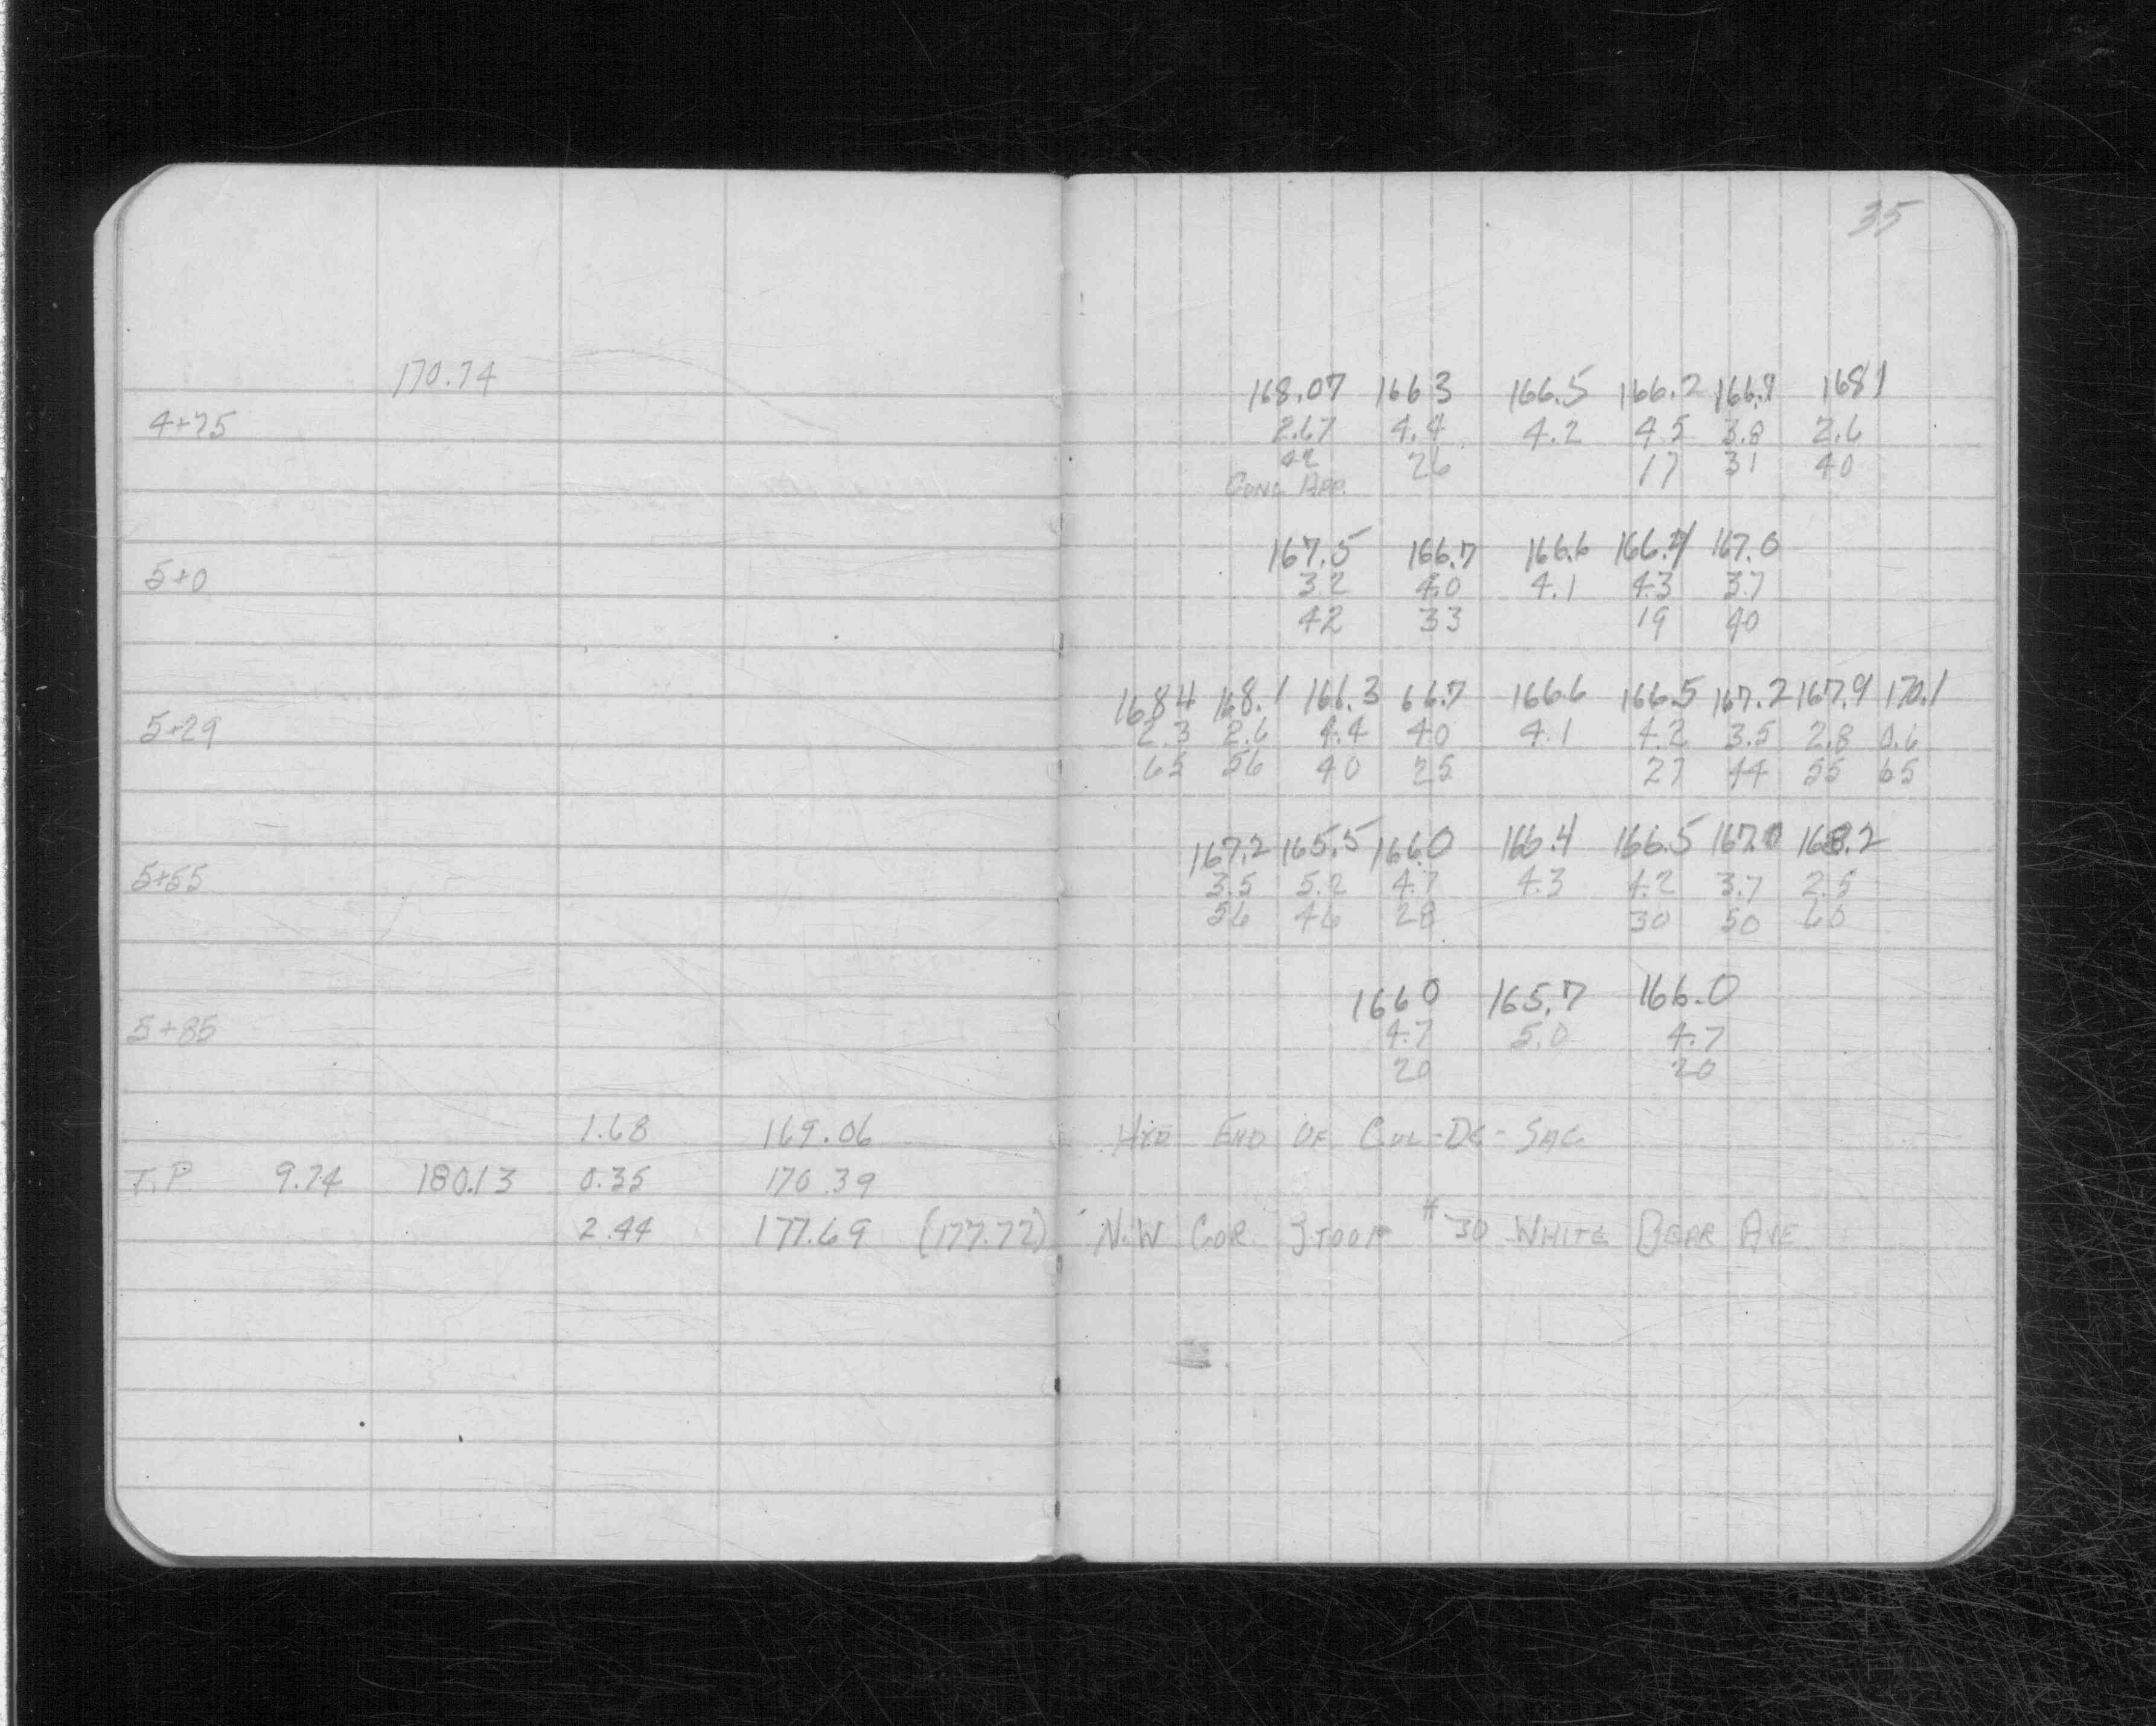 35
170.74
168.07 166 3 166.5 166.2 166.9 168 1
4+75 2.67 4.4 4.2 4 5 3.8 2.6
42 26 17 31 40
CONC APP.
167.5 166.7 166.6 166.4 167.0
5+0 3 2 4.0 4.1 4.3 3.7
42 33 19 40
168 4 168.1 166.3 66.7 166.6 166.5 167.2 167.9 170.1
5+29 2.3 2.6 4.4 4 0 4.1 4.2 3.5 2.8 0.6
65 56 40 25 27 44 55 65
167.2 165.5 166.0 166.4 166.5 167.0 168.2
5+55 3.5 5.2 4.7 4.3 4.2 3.7 2.5
56 46 28 30 50 60
166 0 165.7 166.0
5+85 4.7 5.0 4.7
20 20
1.68 169.06 HYD END OF CUL-DE-SAC
T.P. 9.74 180.13 0.35 170.39
2.44 177.69 (177.72) N.W COR STOOP #30 WHITE BEAR AVE.